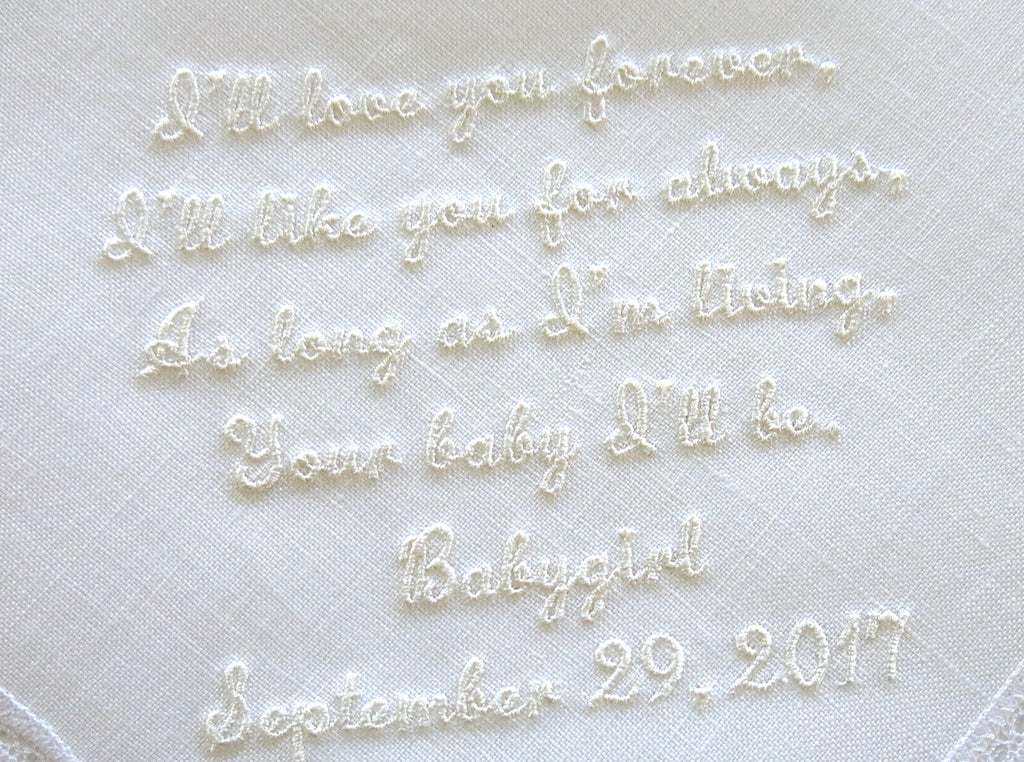 I'll love you forever,
I'll like you for always,
As long as I'm living,
Your baby I'll be.
Babygirl
September 29, 2017